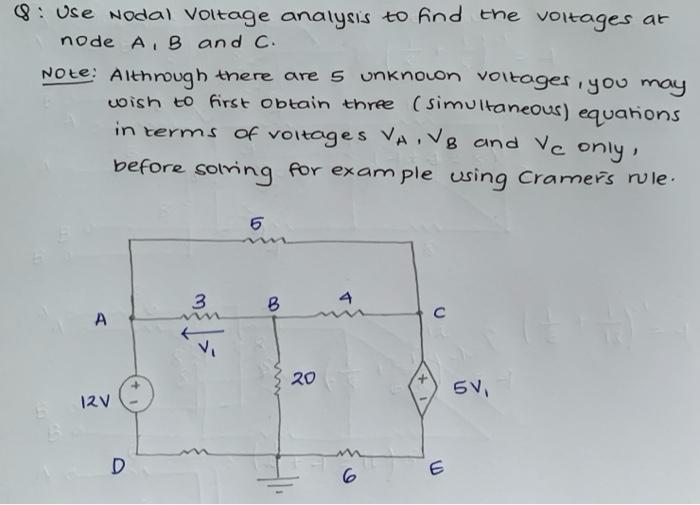 Q: Use Nodal Voltage analysis to find the voltages at
node A, B and C.
Note: Althrough there are 5 unknown voltages, you may
wish to first obtain three (simultaneous) equations
in terms of voltages VA, VB and Vc only,
before solving for example using Cramer's rule.
5
3 B 4
A C
V1
20
12V 5V1
D 6 E